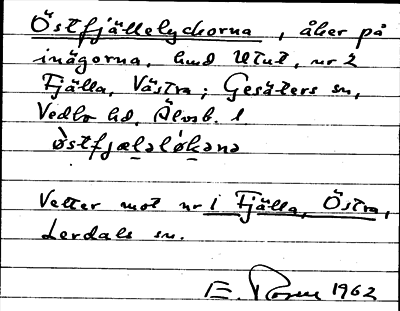 Östfjällelyckorna, åker på
inägorna, hmd Utut, nr 2
Fjälla, Västra; Gesäters sn,
Vedbo hd, Älvsb. l
òstfjæləlókənə
Vetter mot nr 1 Fjälla, Östra,
Lerdals sn.
E. Rosen 1962